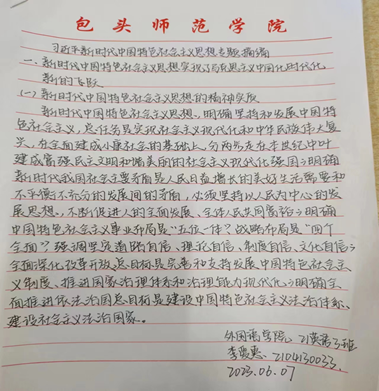 包头师范学院
习近平新时代中国特色社会主义思想专题摘编
一、新时代中国特色社会主义思想实现了马克思主义中国化时代化
新的飞跃
(一)新时代中国特色社会主义思想的精神实质
新时代中国特色社会主义思想,明确坚持和发展中国特
色社会主义,总任务是实现社会主义现代化和中华民族伟大复
兴,在全面建成小康社会的基础上,分两步走在本世纪中叶
建成富强民主文明和谐美丽的社会主义现代化强国;明确
新时代我国社会主要矛盾是人民日益增长的美好生活需要和
不平衡不充分的发展间的矛盾,必须坚持以人民为中心的发
展思想,不断促进人的全面发展、全体人民共同富裕;明确
中国特色社会主义事业布局是"五位一体"战略布局是"四个
全面"强调坚定道路自信、理论自信、制度自信、文化自信;
全面深化改革开放总目标是完善和支持发展中国特色社会主
义制度、推进国家治理体系和治理能力现代化;明确全
面推进依法治国总目标是建设中国特色社会主义法治体系、
建设社会主义法治国家。
外国语学院 21英语3班
2104130033
2023.06.07